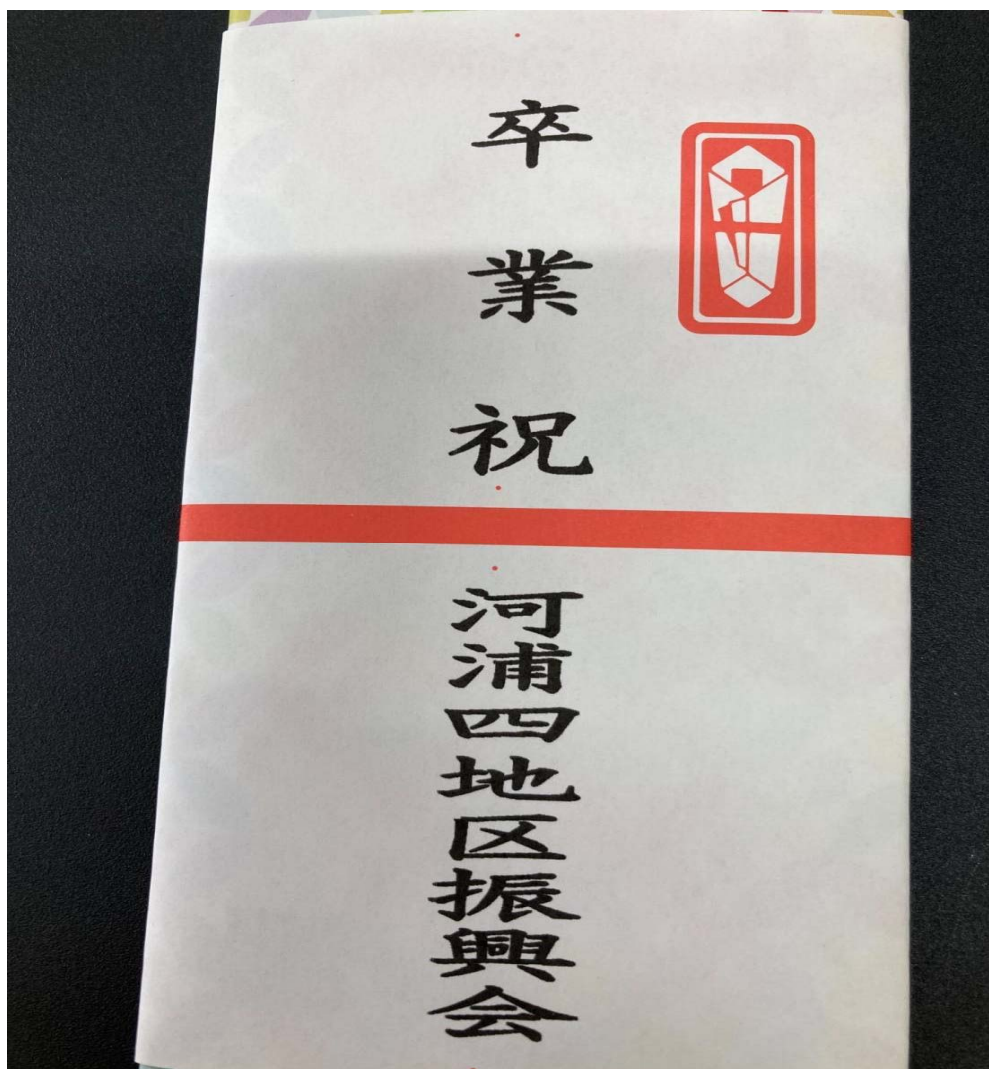 卒業祝
河浦四地区振興会